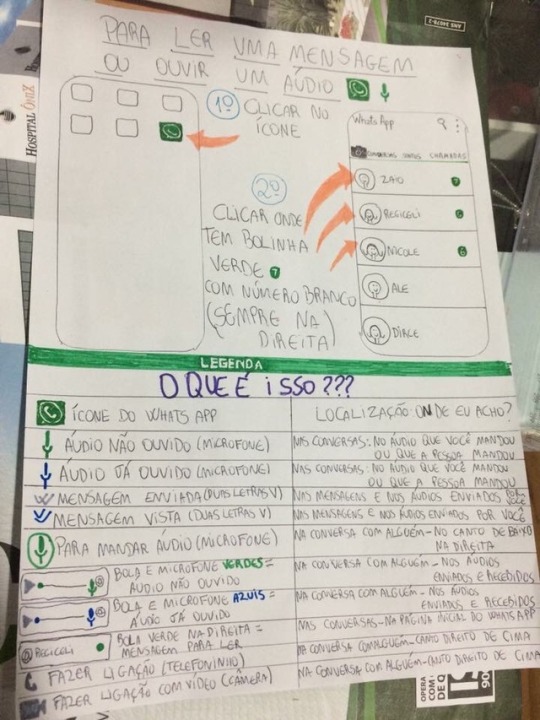 PARA LER UMA MENSAGEM
OU OUVIR UM ÁUDIO
1º CLICAR NO
ÍCONE
WhatsApp
CONVERSAS STATUS CHAMADAS
ZAIO
REGICELI
NICOLE
ALE
DIRCE
2º
CLICAR ONDE
TEM BOLINHA
VERDE
COM NÚMERO BRANCO
(SEMPRE NA
DIREITA)
LEGENDA
O QUE É ISSO???
ÍCONE DO WHATS APP
LOCALIZAÇÃO ONDE EU ACHO?
ÁUDIO NÃO OUVIDO (MICROFONE)
NAS CONVERSAS: NO ÁUDIO QUE VOCÊ MANDOU
OU QUE A PESSOA MANDOU
ÁUDIO JÁ OUVIDO (MICROFONE)
NAS CONVERSAS: NO ÁUDIO QUE VOCÊ MANDOU
OU QUE A PESSOA MANDOU
MENSAGEM ENVIADA (DUAS LETRAS V)
NAS MENSAGENS E NOS ÁUDIOS ENVIADOS POR VOCÊ
MENSAGEM VISTA (DUAS LETRAS V)
NAS MENSAGENS E NOS ÁUDIOS ENVIADOS POR VOCÊ
PARA MANDAR ÁUDIO (MICROFONE)
NA CONVERSA COM ALGUÉM - NO CANTO DE BAIXO
NA DIREITA
BOLA E MICROFONE VERDES =
ÁUDIO NÃO OUVIDO
NA CONVERSA COM ALGUÉM - NOS ÁUDIOS
ENVIADOS E RECEBIDOS
BOLA E MICROFONE AZUIS =
ÁUDIO JÁ OUVIDO
NA CONVERSA COM ALGUÉM - NOS ÁUDIOS
ENVIADOS E RECEBIDOS
REGICELI
BOLA VERDE NA DIREITA =
MENSAGEM PARA LER
NAS CONVERSAS - NA PÁGINA INICIAL DO WHATSAPP
FAZER LIGAÇÃO (TELEFONINHO)
NA CONVERSA COM ALGUÉM - CANTO DIREITO DE CIMA
FAZER LIGAÇÃO COM VÍDEO (CÂMERA)
NA CONVERSA COM ALGUÉM - CANTO DIREITO DE CIMA
HOSPITAL ÔNIX